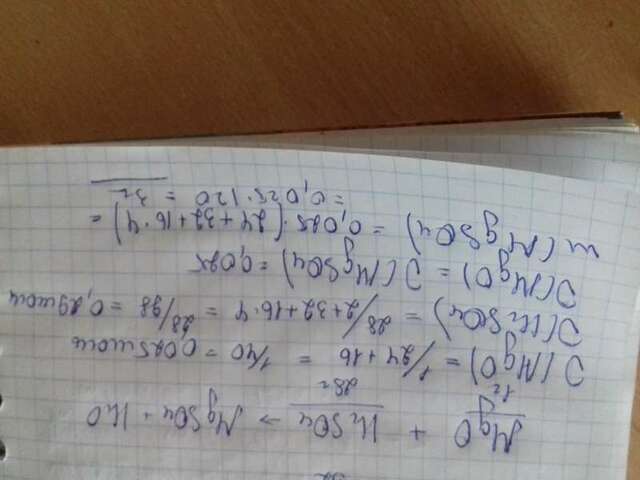 MgO + H₂SO₄ → MgSO₄ + H₂O
1г 28г
ν(MgO) = 1/24+16 = 1/40 = 0,025 моль
ν(H₂SO₄) = 28/2+32+16·4 = 28/98 = 0,29 моль
ν(MgO) = ν(MgSO₄) = 0,025
m(MgSO₄) = 0,025·(24+32+16·4) =
= 0,025·120 = 3г